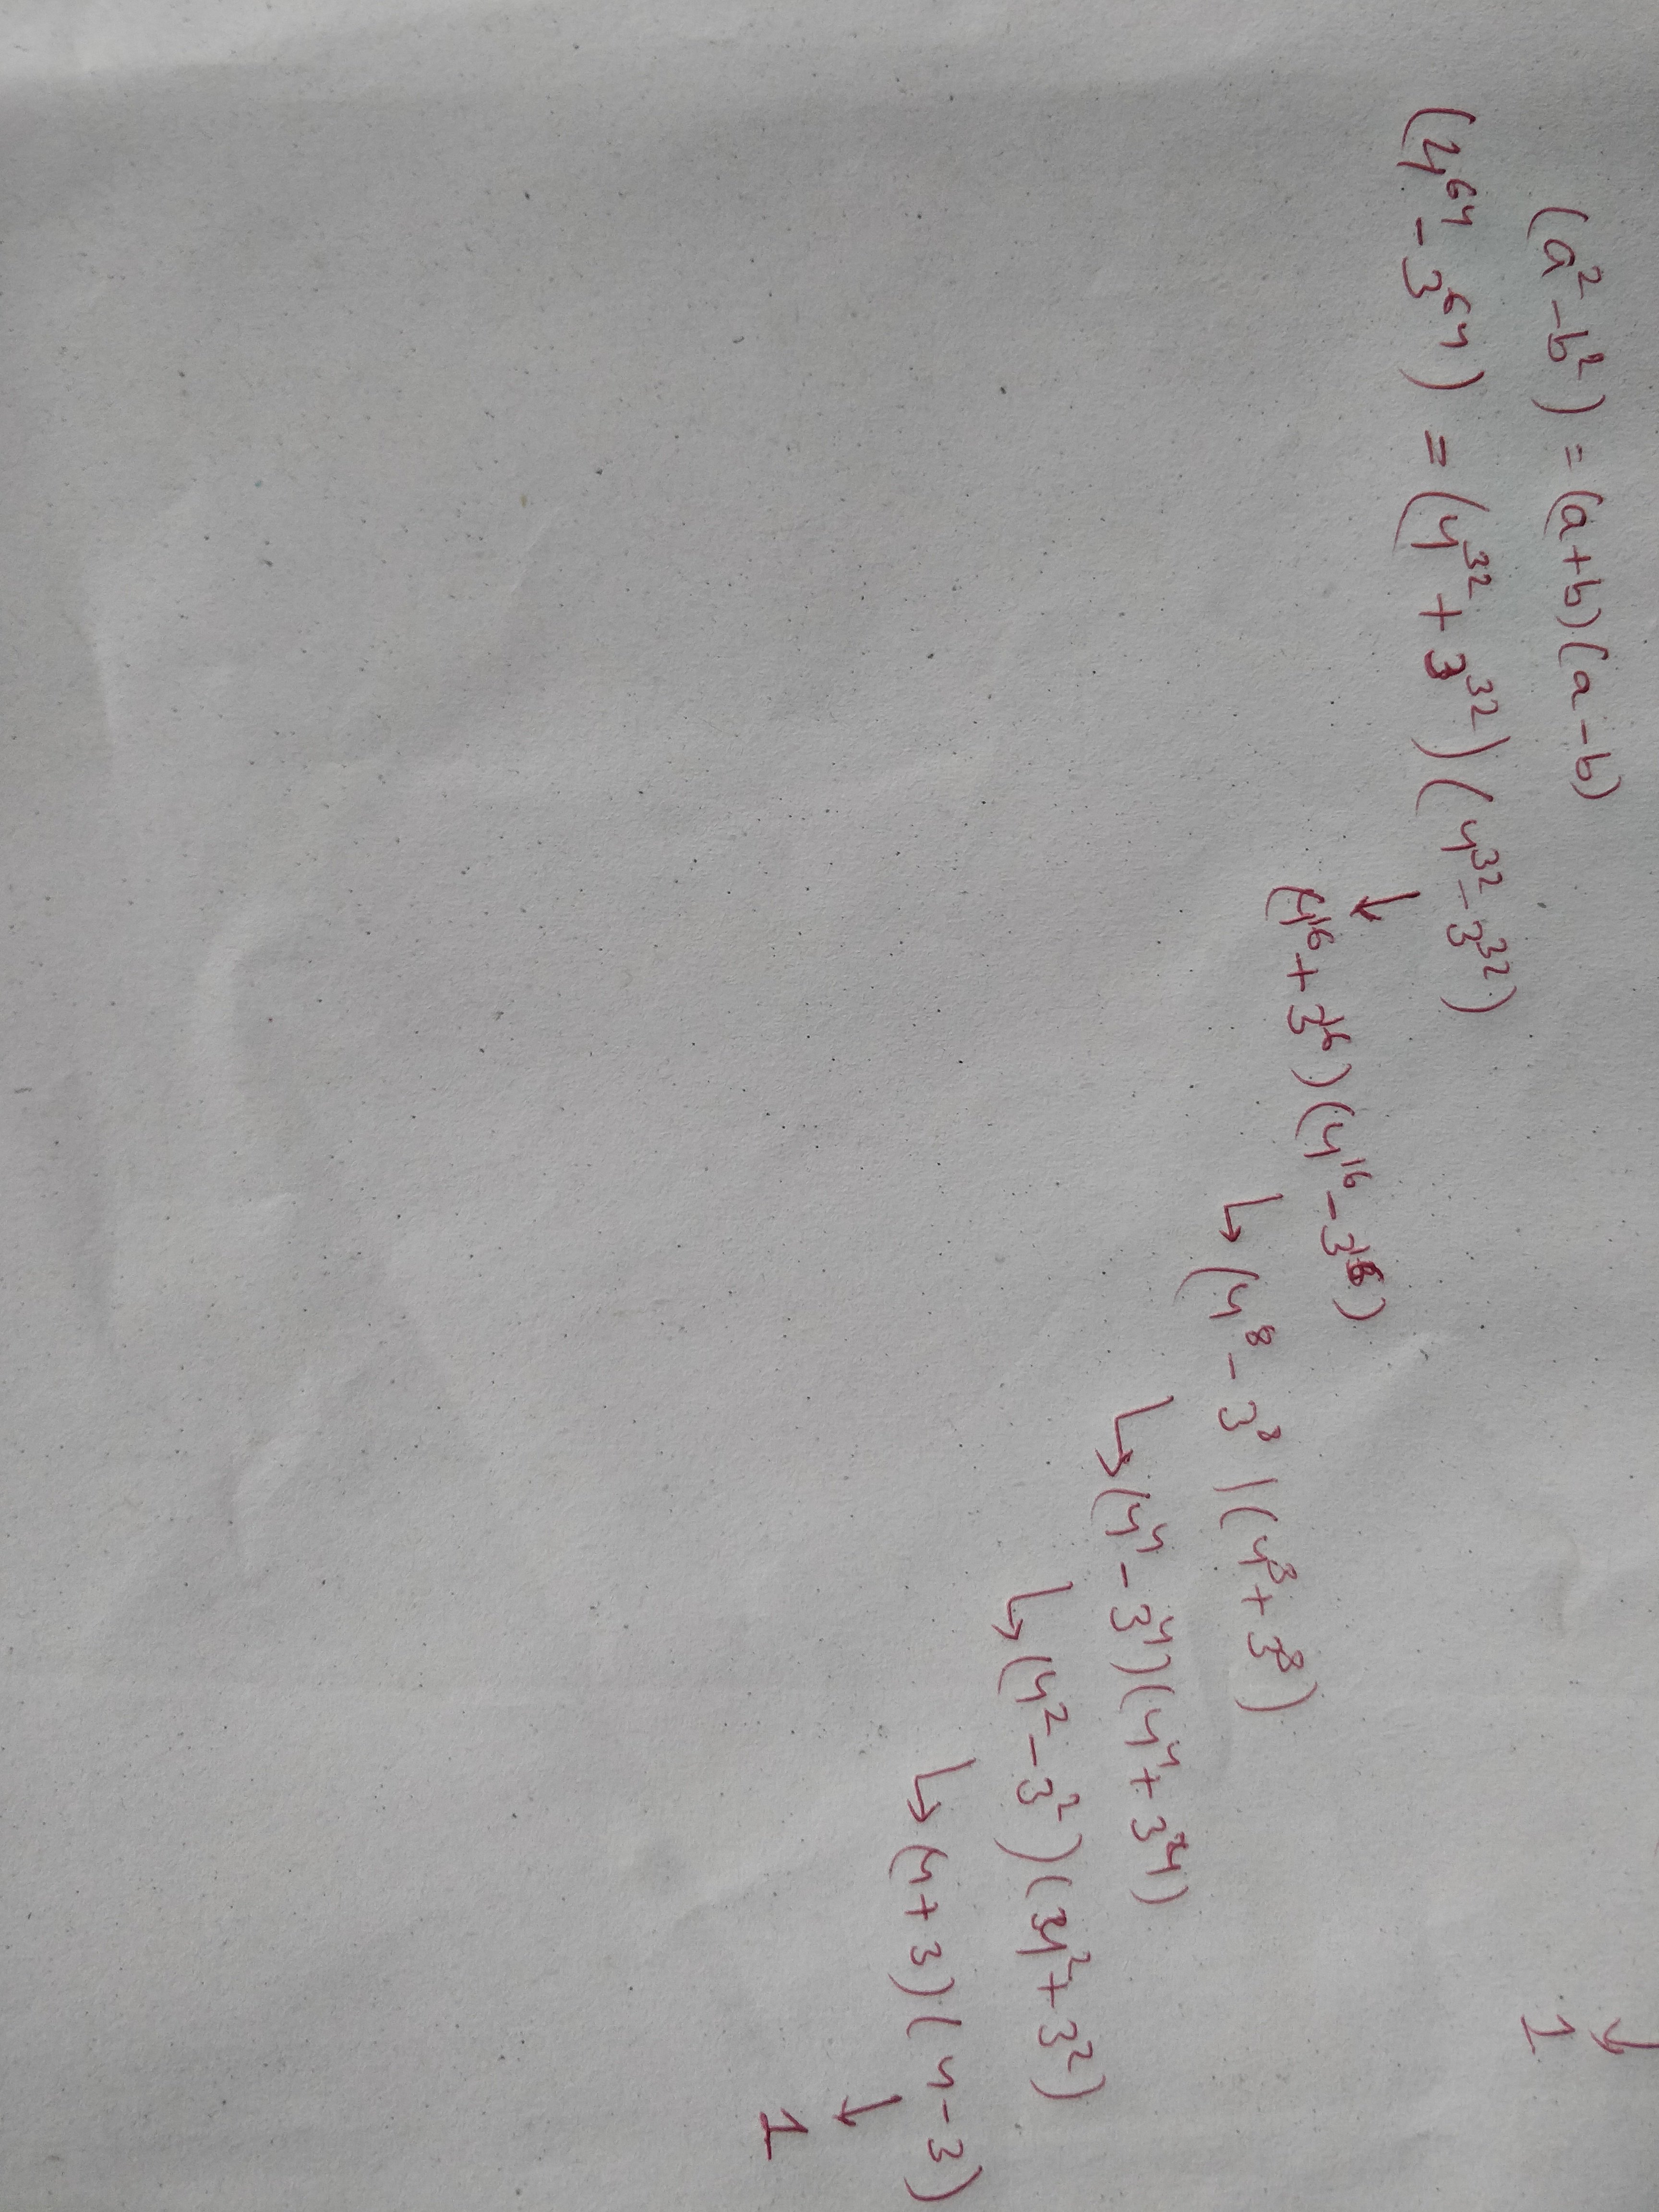 (a² - b²) = (a+b)(a-b)
(4⁶⁴ - 3⁶⁴) = (4³² + 3³²)(4³² - 3³²)
↓
(4¹⁶ + 3¹⁶)(4¹⁶ - 3¹⁶)
↳ (4⁸ - 3⁸)(4⁸ + 3⁸)
↳ (4⁴ - 3⁴)(4⁴ + 3⁴)
↳ (4² - 3²)(4² + 3²)
↳ (4 + 3)(4 - 3)
↓
1
↓
1